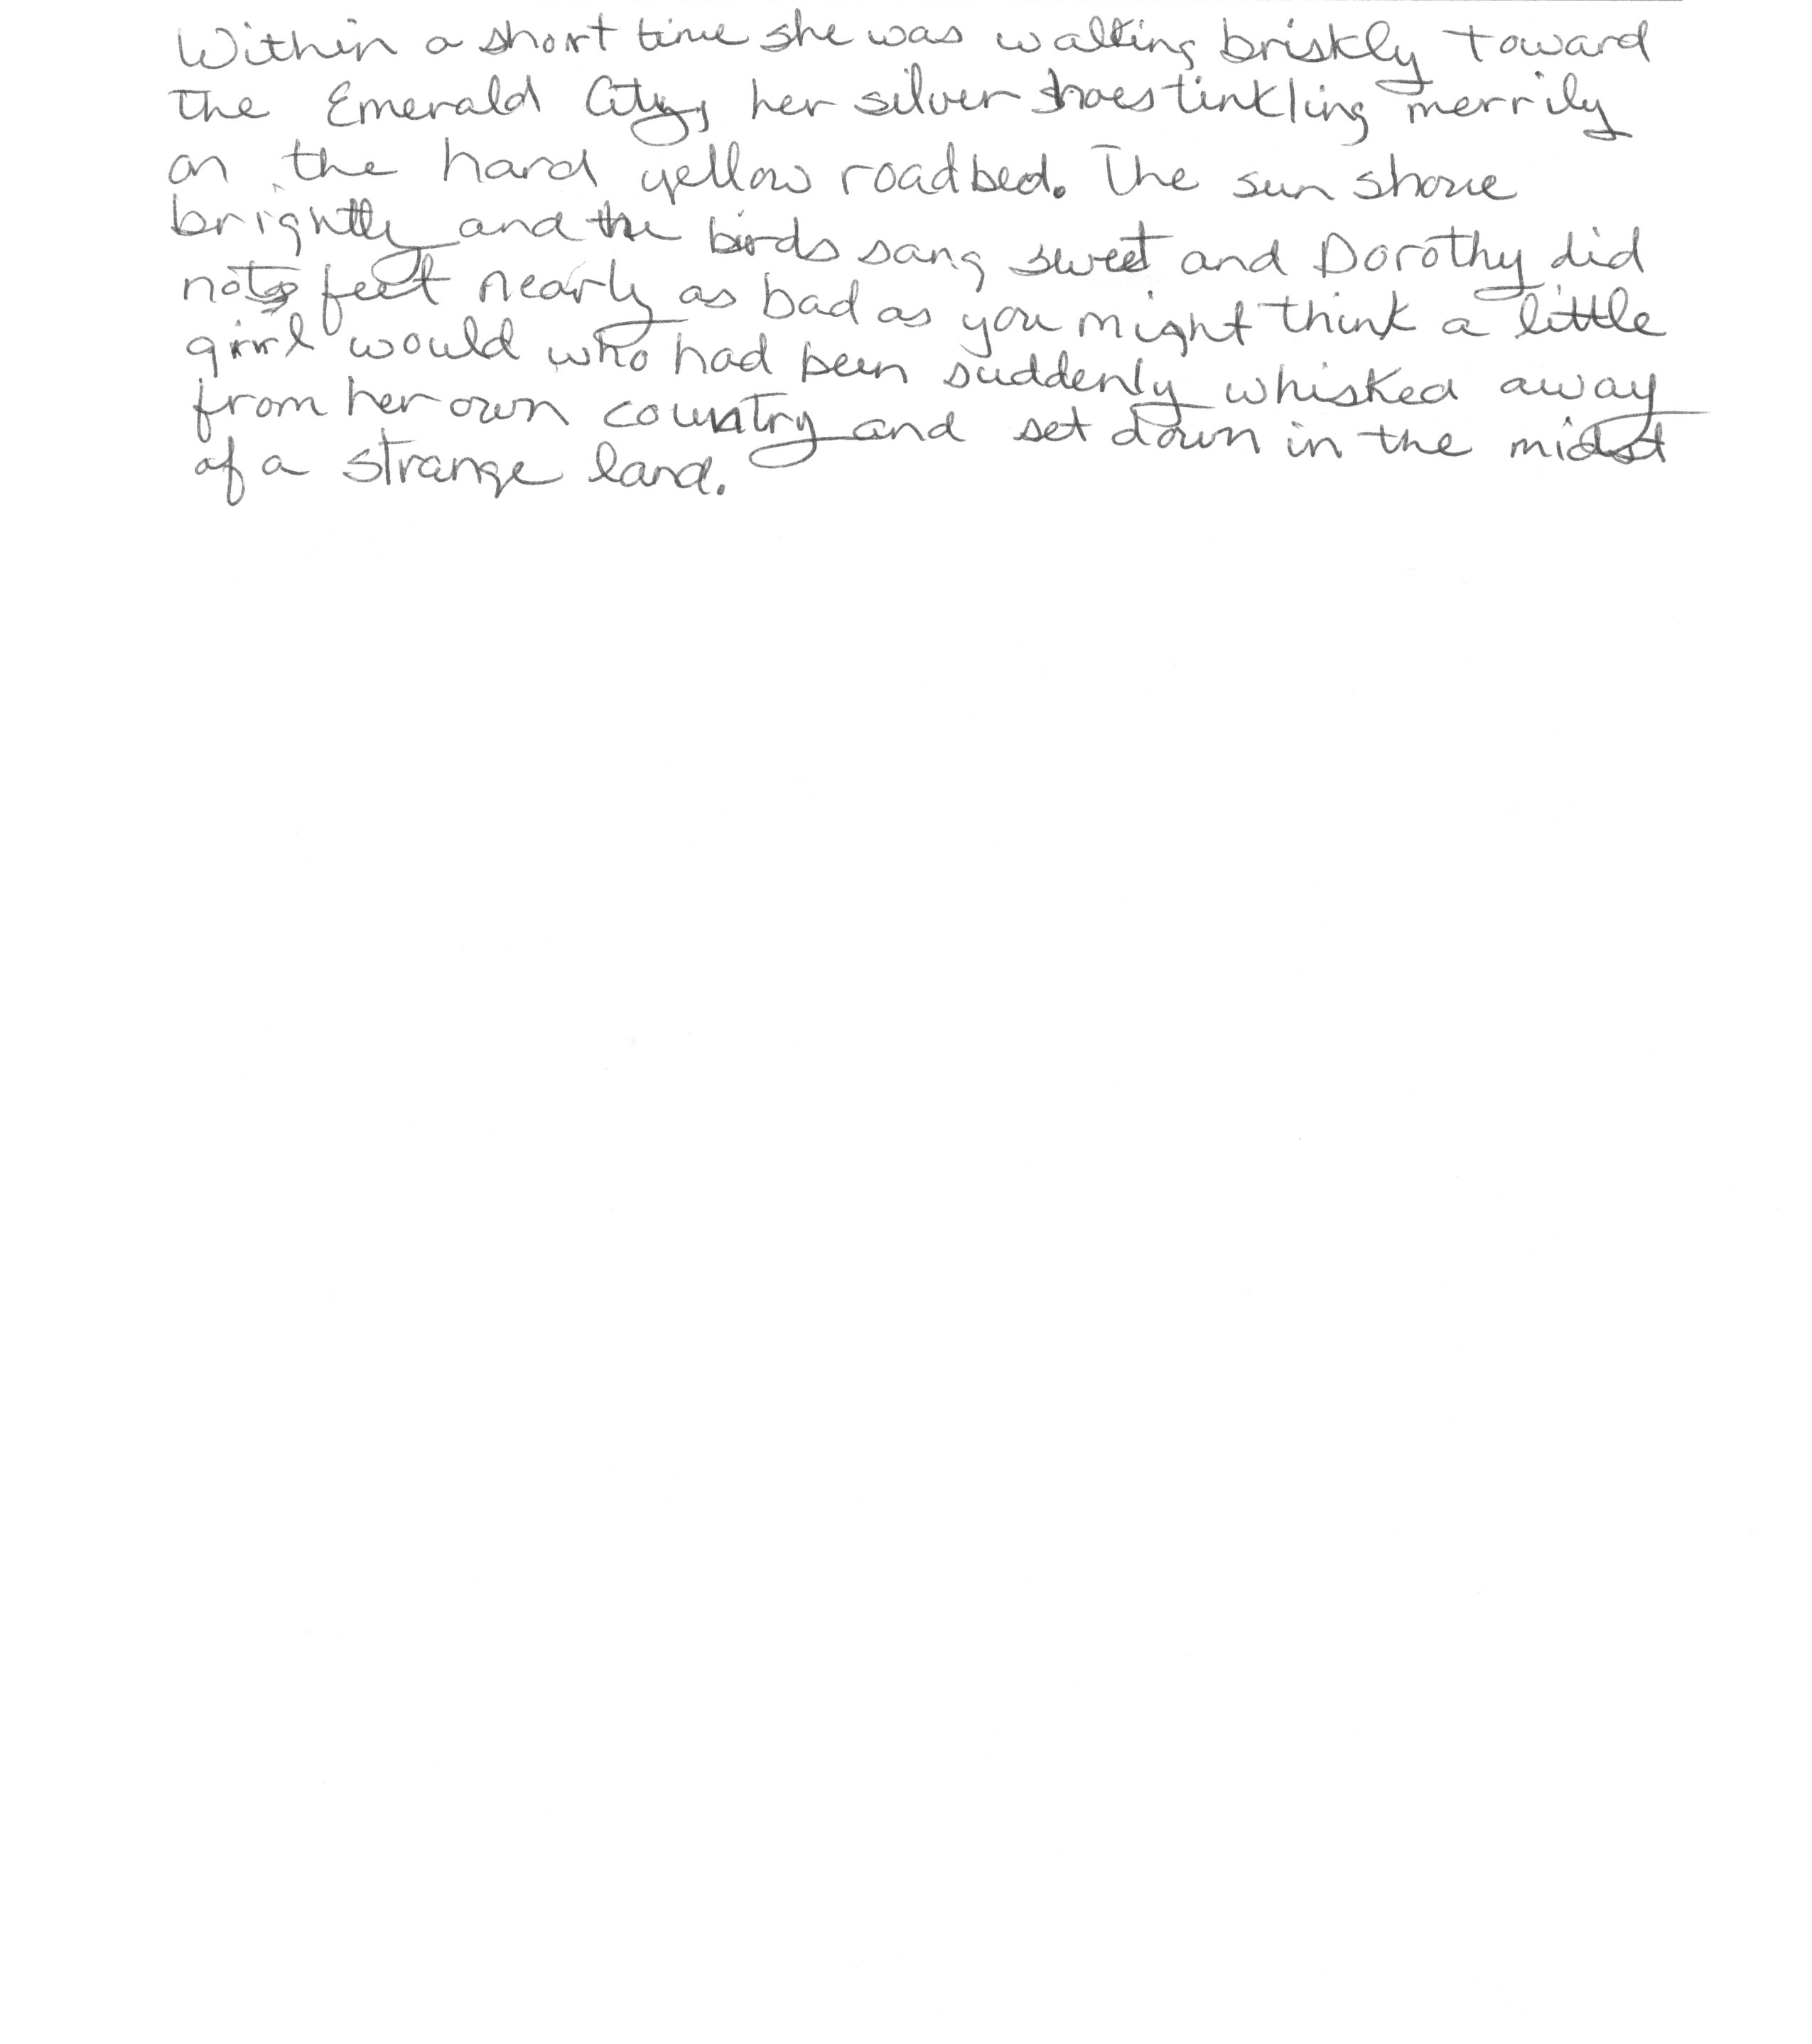 Within a short time she was walking briskly toward
the Emerald City, her silver shoes tinkling merrily
on the hard yellow roadbed. The sun shone
brightly and the birds sang sweet and Dorothy did
not feel nearly as bad as you might think a little
girl would who had been suddenly whisked away
from her own country and set down in the midst
of a strange land.